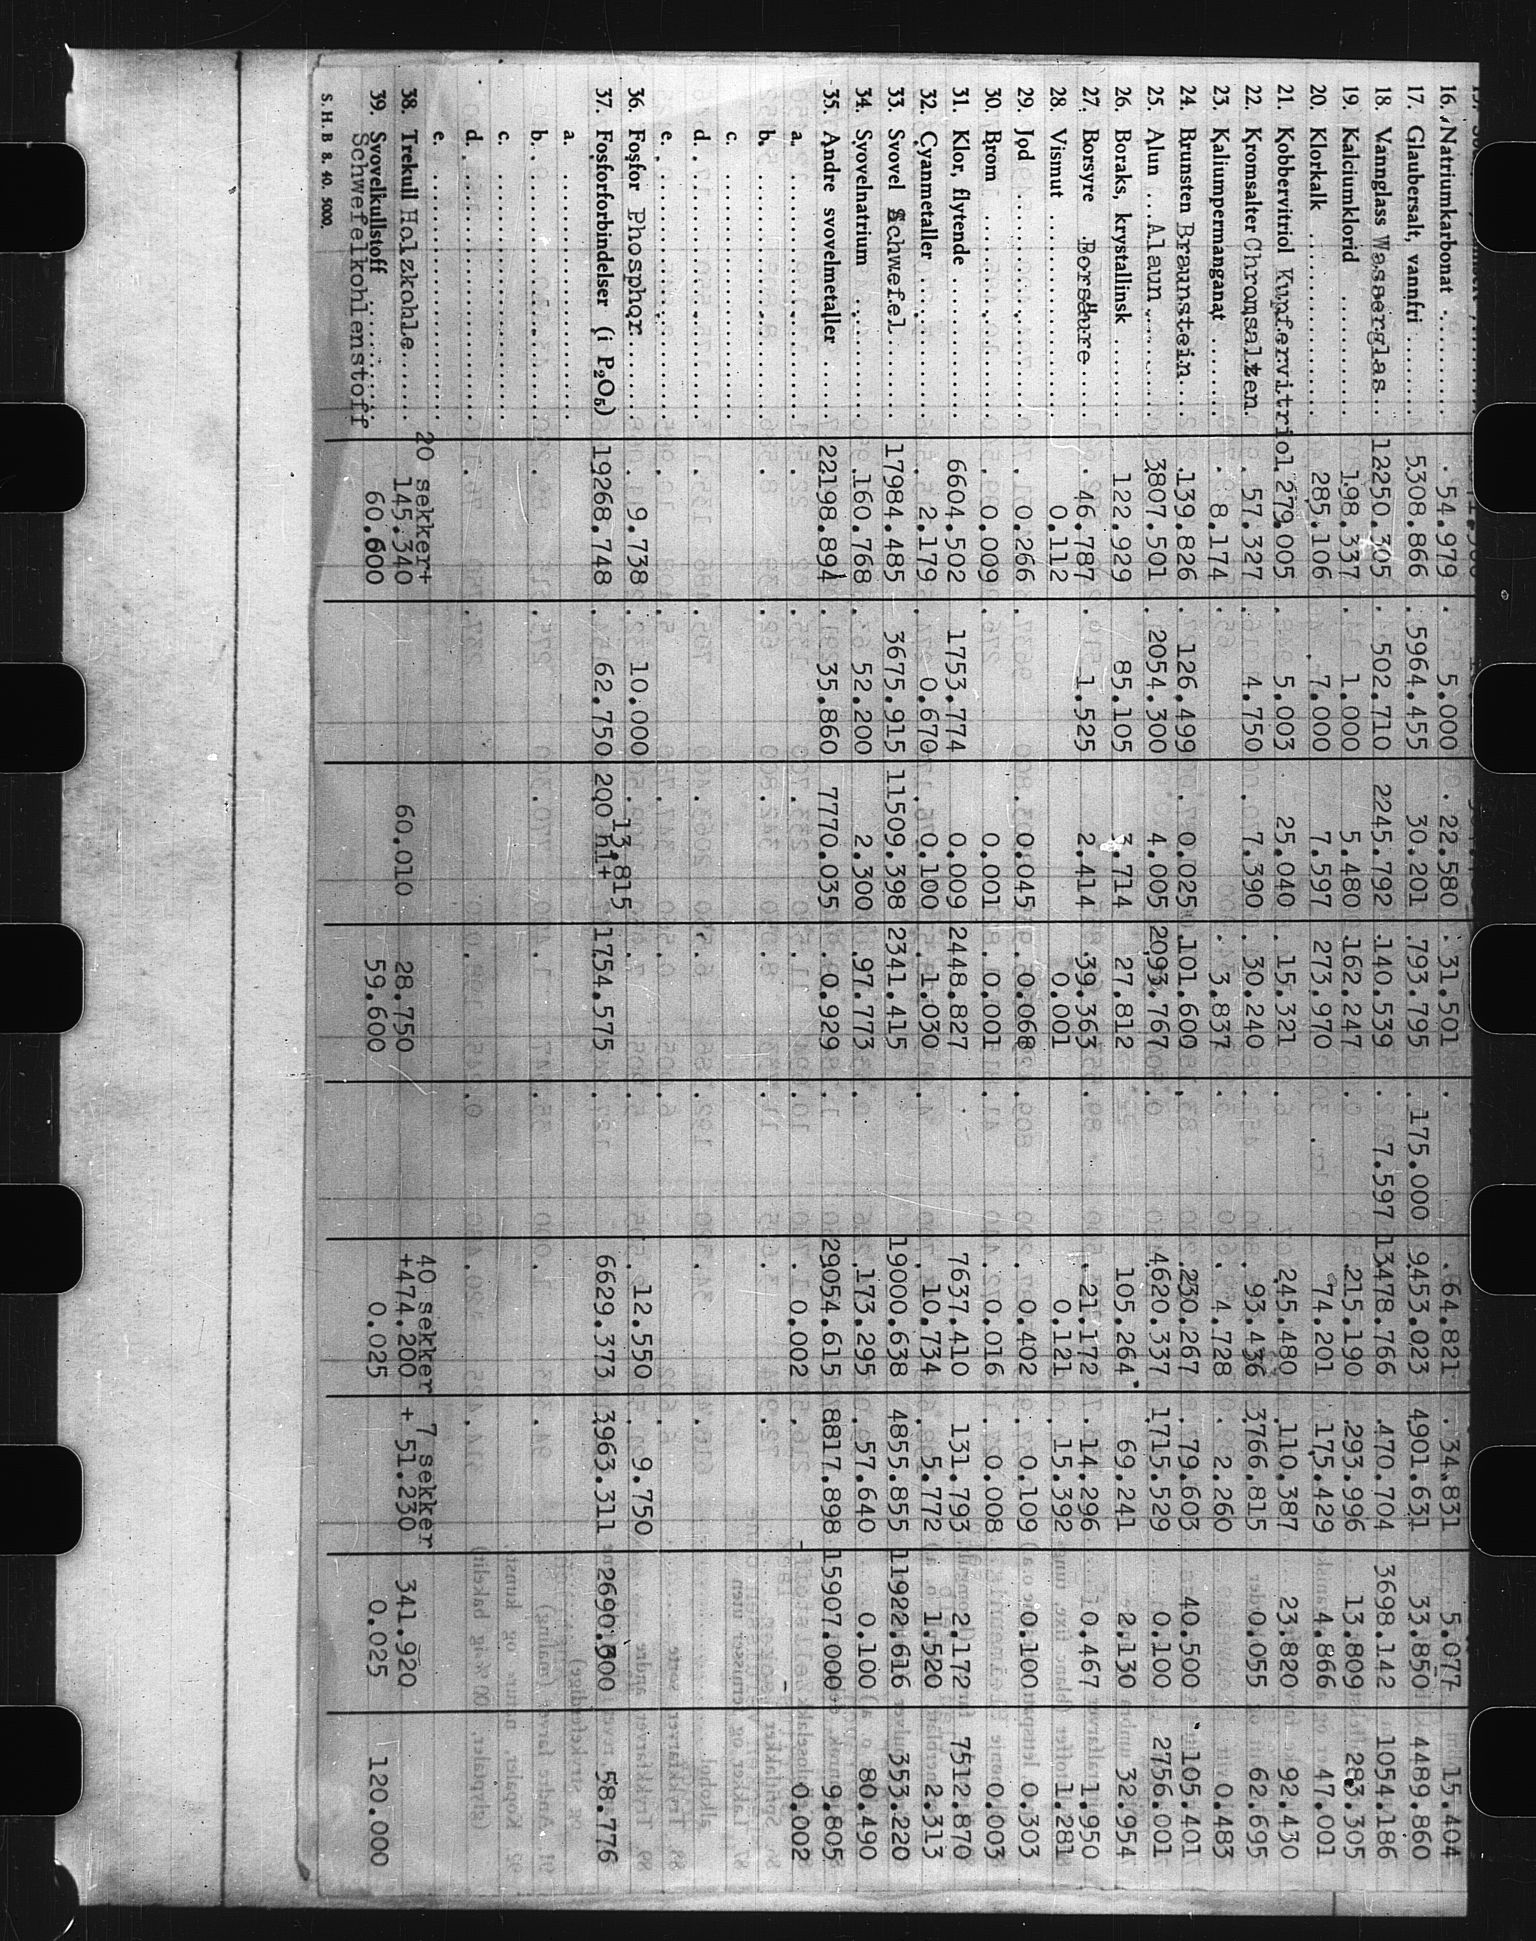 16. Natriumkarbonat .......... 54.979 5.000 22.580 31.501 64.821 34.831 5.077 15.404
17. Glaubersalt, vannfri ....... 5308.866 5964.455 30.201 793.795 175.000 9453.023 4901.631 33.850 4489.860
18. Vannglass Wasserglas .. 12250.305 502.710 2245.792 140.539 7.597 13478.766 470.704 3698.142 1054.186
19. Kalciumklorid ............ 198.337 1.000 5.480 162.247 215.190 293.996 13.809 283.305
20. Klorkalk .................. 285.106 7.000 7.597 273.970 74.201 175.429 4.866 47.001
21. Kobbervitriol Kupfervitriol 279.005 5.003 25.040 15.321 245.480 110.387 23.820 92.430
22. Kromsalter Chromsalzen. 57.327 4.750 7.390 30.240 93.436 3766.815 0.055 62.695
23. Kaliumpermanganat ........ 8.174 3.837 4.728 2.260 0.483
24. Brunsten Braunstein .... 139.826 126.499 0.025 101.600 230.267 79.603 40.500 105.401
25. Alun .... Alaun .......... 3807.501 2054.300 4.005 2093.767 4620.337 1715.529 0.100 2756.001
26. Boraks, krystallinsk ........ 122.929 85.105 3.714 27.812 105.264 69.241 2.130 32.954
27. Borsyre .Borsäure ..... 46.787 1.525 2.414 39.363 21.172 14.296 0.467 1.950
28. Vismut .................... 0.112 0.001 0.121 15.392 1.281
29. Jod ........................ 0.266 0.045 0.068 0.402 0.109 0.100 0.303
30. Brom ...................... 0.009 0.001 0.001 0.016 0.008 0.003
31. Klor, flytende .............. 6604.502 1753.774 0.009 2448.827 7637.410 131.793 2.172 7512.870
32. Cyanmetaller .............. 2.179 0.670 0.100 1.030 10.734 5.772 1.520 2.313
33. Svovel Schwefel ........ 17984.485 3675.915 11509.398 2341.415 19000.638 4855.855 11922.616 353.220
34. Svovelnatrium ............ 160.768 52.200 2.300 97.773 173.295 57.640 0.100 80.490
35. Andre svovelmetaller ...... 22198.894 35.860 7770.035 0.929 29054.615 8817.898 15907.000 9.805
a. ............................ 0.002 - - 0.002
b. ............................
c. ............................
d. ............................
e. ............................
36. Fosfor Phosphor ........ 9.738 10.000 13.815 12.550 9.750
37. Fosforforbindelser (i P₂O₅) 19268.748 62.750 200 hl+ 1754.575 6629.373 3963.311 2690.600 58.776
a. ............................
b. ............................
c. ............................
d. ............................
e. ............................
20 sekker+ 40 sekker 7 sekker
38. Trekull Holzkohle ....... 145.340 60.010 28.750 +474.200 + 51.230 341.920
39. Svovelkullstoff ............ 60.600 59.600 0.025 0.025 120.000
Schwefelkohlenstoff
S. H. B 8. 40. 5000.